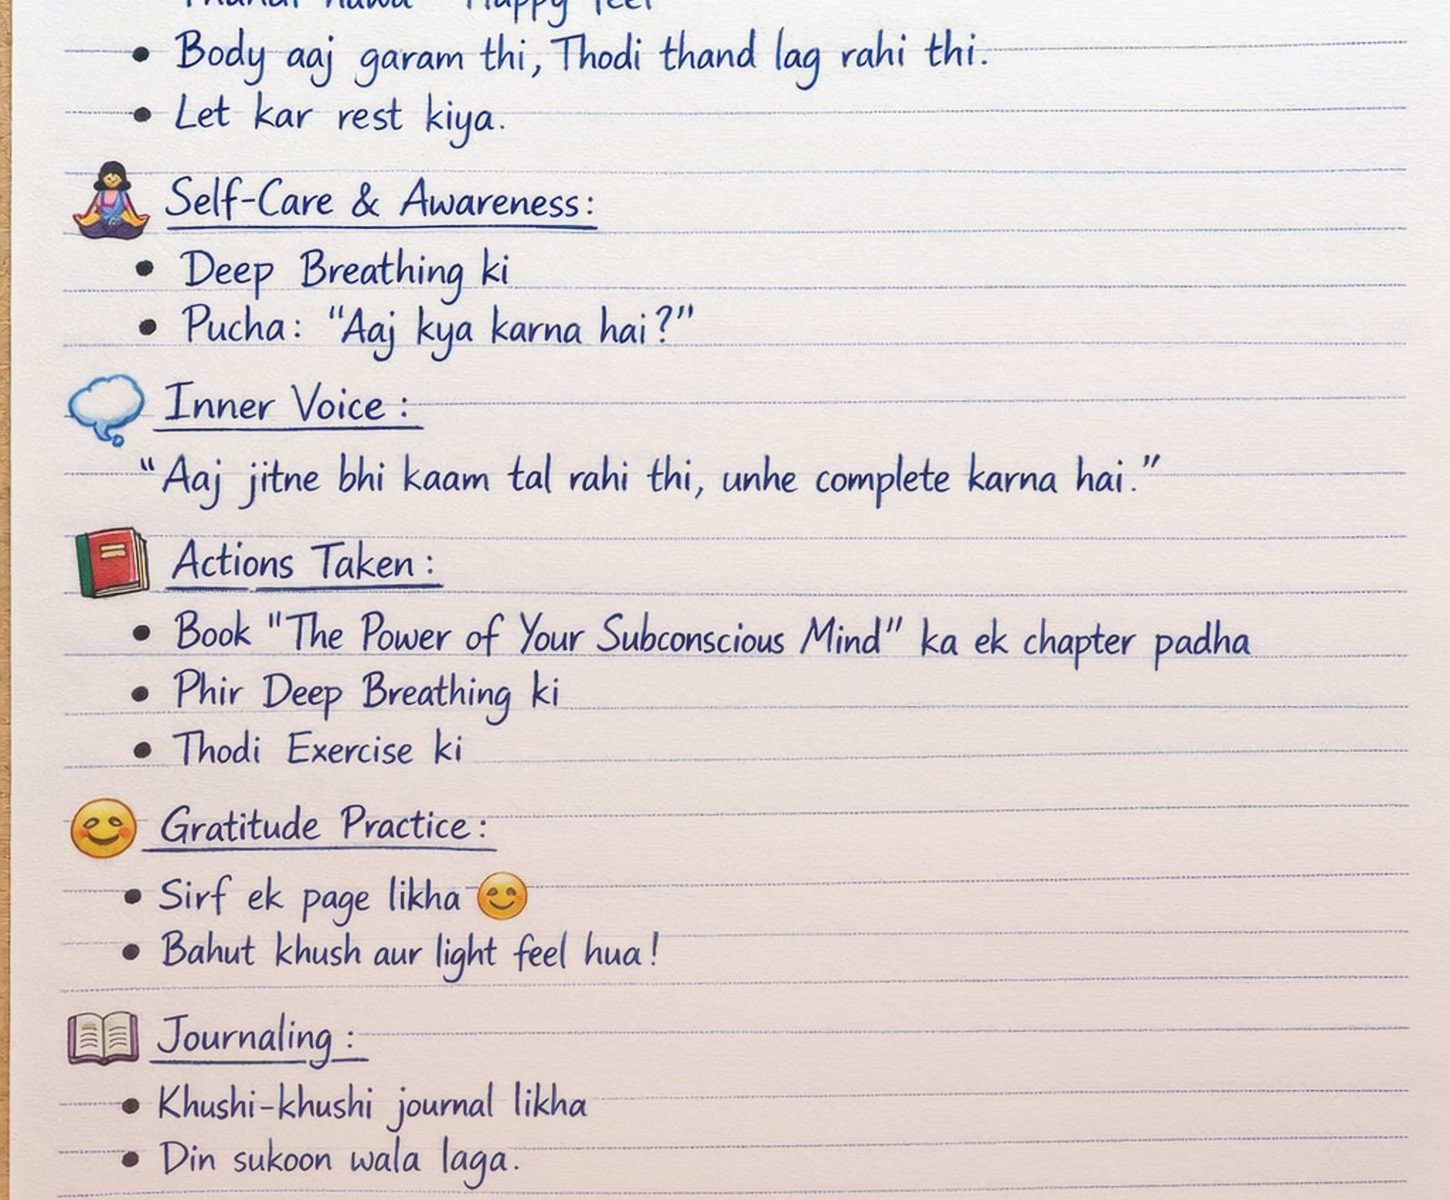 Body aaj garam thi, Thodi thand lag rahi thi.
Let kar rest kiya.
Self-Care & Awareness:
Deep Breathing ki
Pucha: "Aaj kya karna hai?"
Inner Voice:
"Aaj jitne bhi kaam tal rahi thi, unhe complete karna hai."
Actions Taken:
Book "The Power of Your Subconscious Mind" ka ek chapter padha
Phir Deep Breathing ki
Thodi Exercise ki
Gratitude Practice:
Sirf ek page likha 😊
Bahut khush aur light feel hua!
Journaling:
Khushi-khushi journal likha
Din sukoon wala laga.